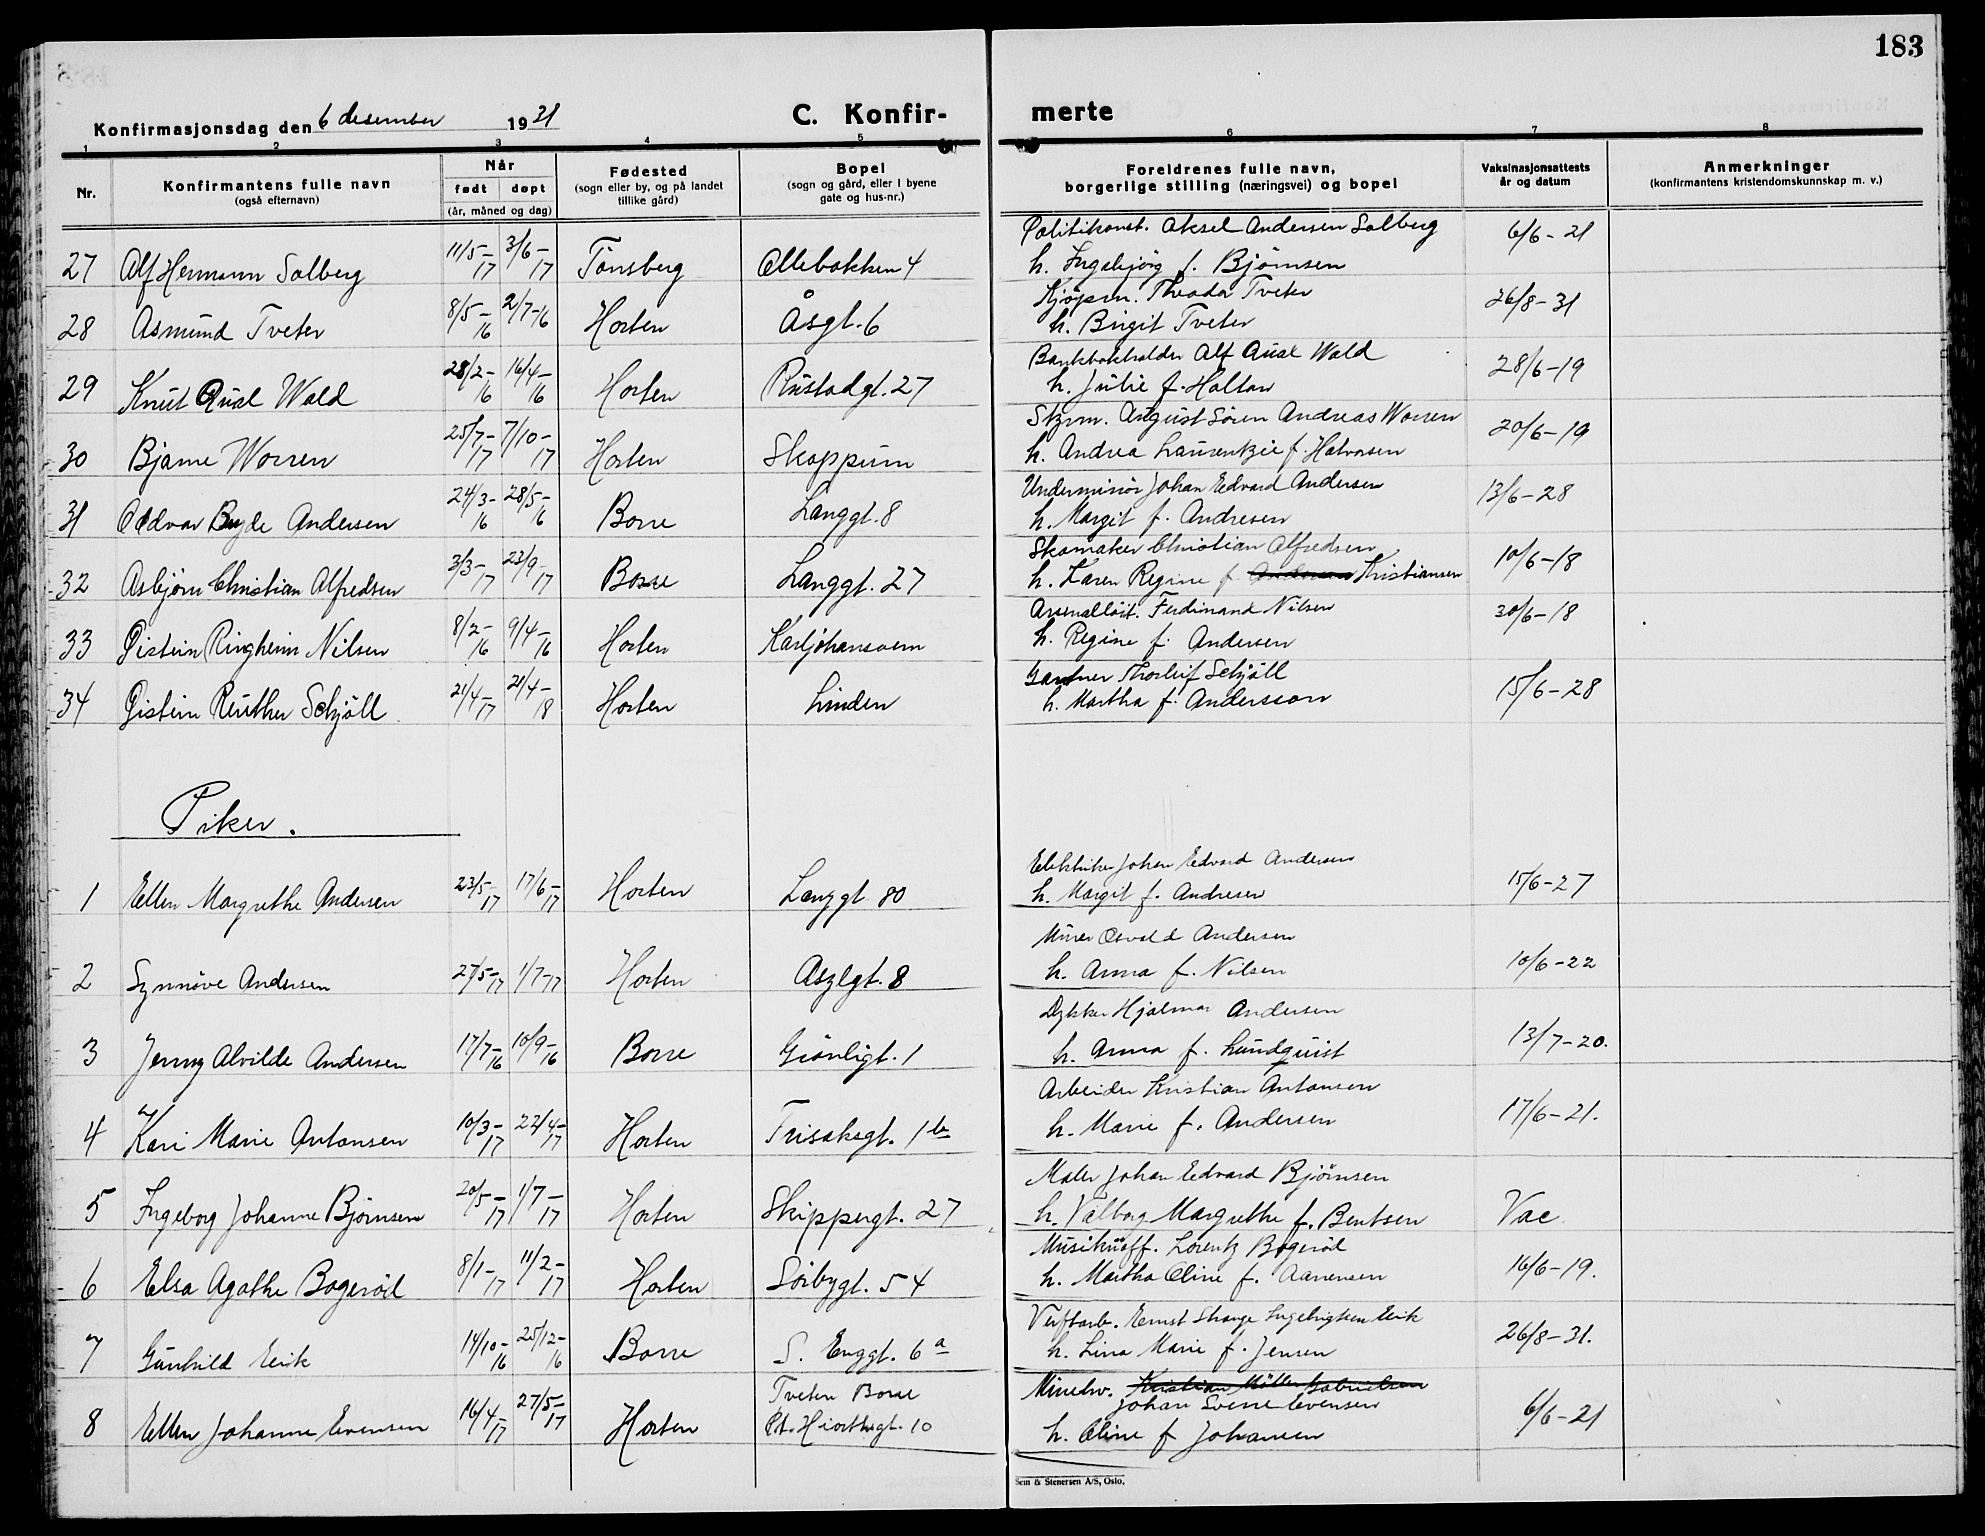 183
Konfirmasjonsdag den 6 desember 1931
C. Konfir- merte
1 2 3 4 5 6 7 8
Nr.
Konfirmantens fulle navn
(også efternavn)
Når
født døpt
(år, måned og dag)
Fødested
(sogn eller by, og på landet
tillike gård)
Bopel
(sogn og gård, eller i byene
gate og hus-nr.)
Foreldrenes fulle navn,
borgerlige stilling (næringsvei) og bopel
Vaksinasjonsattests
år og datum
Anmerkninger
(konfirmantens kristendomskunnskap m. v.)
Politikonst. Aksel Andersen Solberg
27 Alf Hermann Solberg 11/5-17 3/6-17 Tønsberg Ollebakken 4 6/6-21
h. Ingebjørg f. Bjørnsen
Kjøpm. Theodor Tveter
28 Asmund Tveter 8/5-16 2/7-16 Horten Åsgt. 6 26/8-31
h. Birgit Tveter
Bankbokholder Alf Wald
29 Knut Wald 28/2-16 16/4-16 Horten Rustadgt. 27 28/6-19
h. Julie f. Holtan
August Søren Andreas Worren
30 Bjarne Worren 25/7-17 7/10-17 Horten Skoppum 20/6-19
h. Andrea f. Halvorsen
Underminør Johan Edvard Andersen
31 Oddvar Andersen 24/3-16 28/5-16 Borre Langgt. 8 13/6-28
h. Margit f. Andresen
Skomaker Christian Alfredsen
32 Asbjørn Christian Alfredsen 3/3-17 23/9-17 Borre Langgt. 27 10/6-18
h. Karen Regine f. Kristiansen
Ferdinand Nilsen
33 Øistein Ringheim Nilsen 8/2-16 9/4-16 Horten Karljohansvern 30/6-18
h. Regine f. Andersen
Gartner Thorleif Schjöll
34 Øistein Reuther Schjöll 21/4-17 21/4-18 Horten Linden 15/6-28
h. Martha f. Andersson
Piker.
Elektriker Johan Edvard Andersen
1 Ellen Margrethe Andersen 23/5-17 17/6-17 Horten Langgt. 80 15/6-27
h. Margit f. Andresen
Osvald Andersen
2 Synnøve Andersen 27/5-17 1/7-17 Horten Asylgt. 8 10/6-22
h. Anna f. Nilsen
Dykker Hjalmar Andersen
3 Jenny Alvilde Andersen 17/7-16 10/9-16 Borre Grønligt. 1 13/7-20.
h. Anna f. Lundquist
Arbeider Kristian Antonsen
4 Kari Marie Antonsen 10/3-17 22/4-17 Horten 1 b 17/6-21.
h. Marie f. Andersen
Maler Johan Edvard Bjørnsen
5 Ingeborg Johanne Bjørnsen 20/5-17 1/7-17 Horten Skippergt. 27 Vac.
h. Valborg Margrethe f. Bentsen
Lorentz Bogerød
6 Elsa Agathe Bogerød 8/1-17 11/2-17 Horten Sørbygt. 54 16/6-19.
h. Martha Oline f. Aanensen
Verftarb. Ernst Strange Ingebrigtsen Eeik
7 Gunhild Eeik 14/10-16 25/12-16 Borre S. Enggt. 6 a 26/8-31.
h. Lina Marie f. Jensen
Tveten Borre
Minehv. Kristian Møller Gabrielsen
Johan Sverre Evensen
8 Ellen Johanne Evensen 16/4-17 27/5-17 Horten Pt. Hiorthsgt. 10 6/6-21
h. Oline f. Johansen
Sem & Stenersen A/S, Oslo.